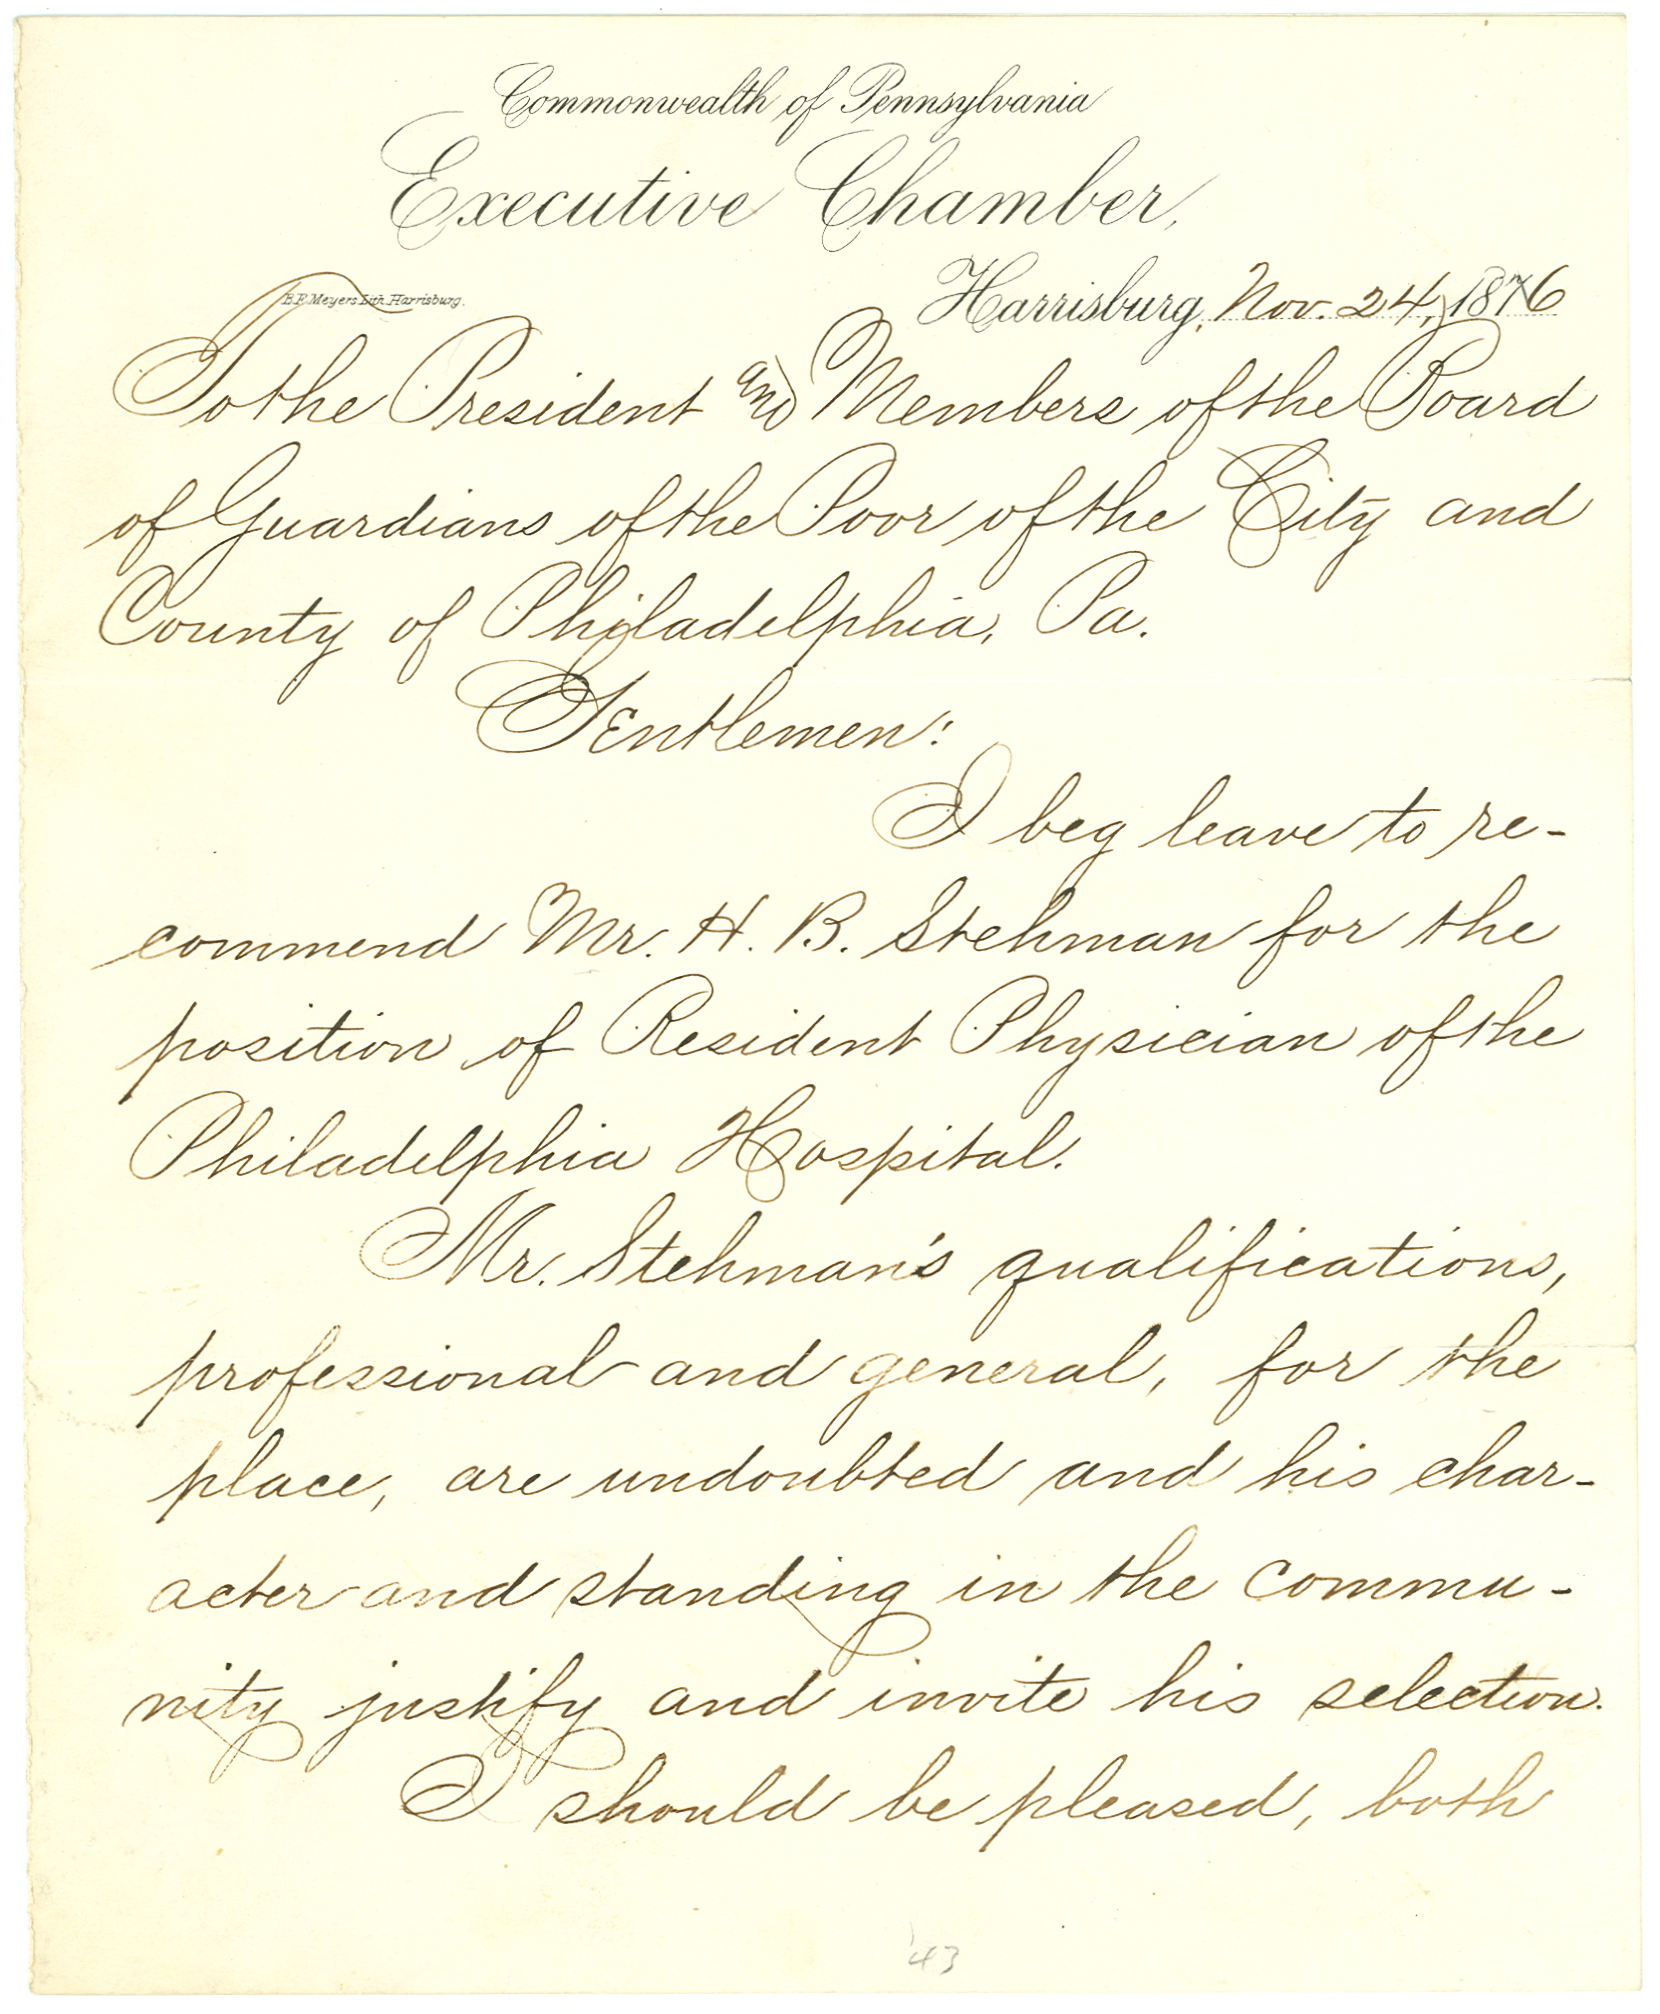 Commonwealth of Pennsylvania
Executive Chamber,
B.F. Meyers Lith. Harrisburg.
Harrisburg, Nov. 24, 1876
To the President and Members of the Board
of Guardians of the Poor of the City and
County of Philadelphia, Pa.
Gentlemen:
I beg leave to re-
commend Mr. H. B. Stehman for the
position of Resident Physician of the
Philadelphia Hospital.
Mr. Stehman's qualifications,
professional and general, for the
place, are undoubted and his char-
acter and standing in the commu-
nity justify and invite his selection.
I should be pleased, both
43